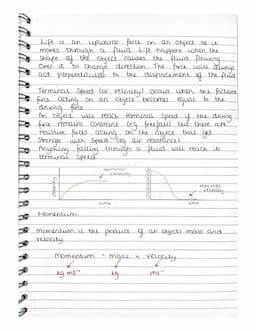 Lift is an upwards force on an object as it
moves through a fluid. Lift happens when the
shape of the object causes the fluid flowing
over it to change direction. The force will always
act perpendicular to the displacement of the fluid.
Terminal Speed (or velocity) occurs when the frictional
force acting on an object becomes equal to the
driving force.
An object will reach terminal speed if the driving
force remains constant (eg freefall) but there are
resistive forces acting on the object that get
stronger with speed (eg air resistance).
Anything falling through a fluid will reach its
terminal speed.
terminal
velocity
velocity
time
terminal
velocity
time
Momentum
momentum is the product of an objects mass and
velocity
momentum = mass x velocity
kg ms⁻¹ kg ms⁻¹